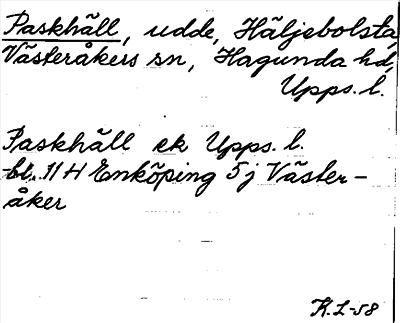 Paskhäll, udde, Häljebolsta,
Västeråkers sn, Hagunda hd,
Upps. l.
Paskhäll ek Upps. l.
bl. 11 H Enköping 5j Väster-
åker
K.L-58